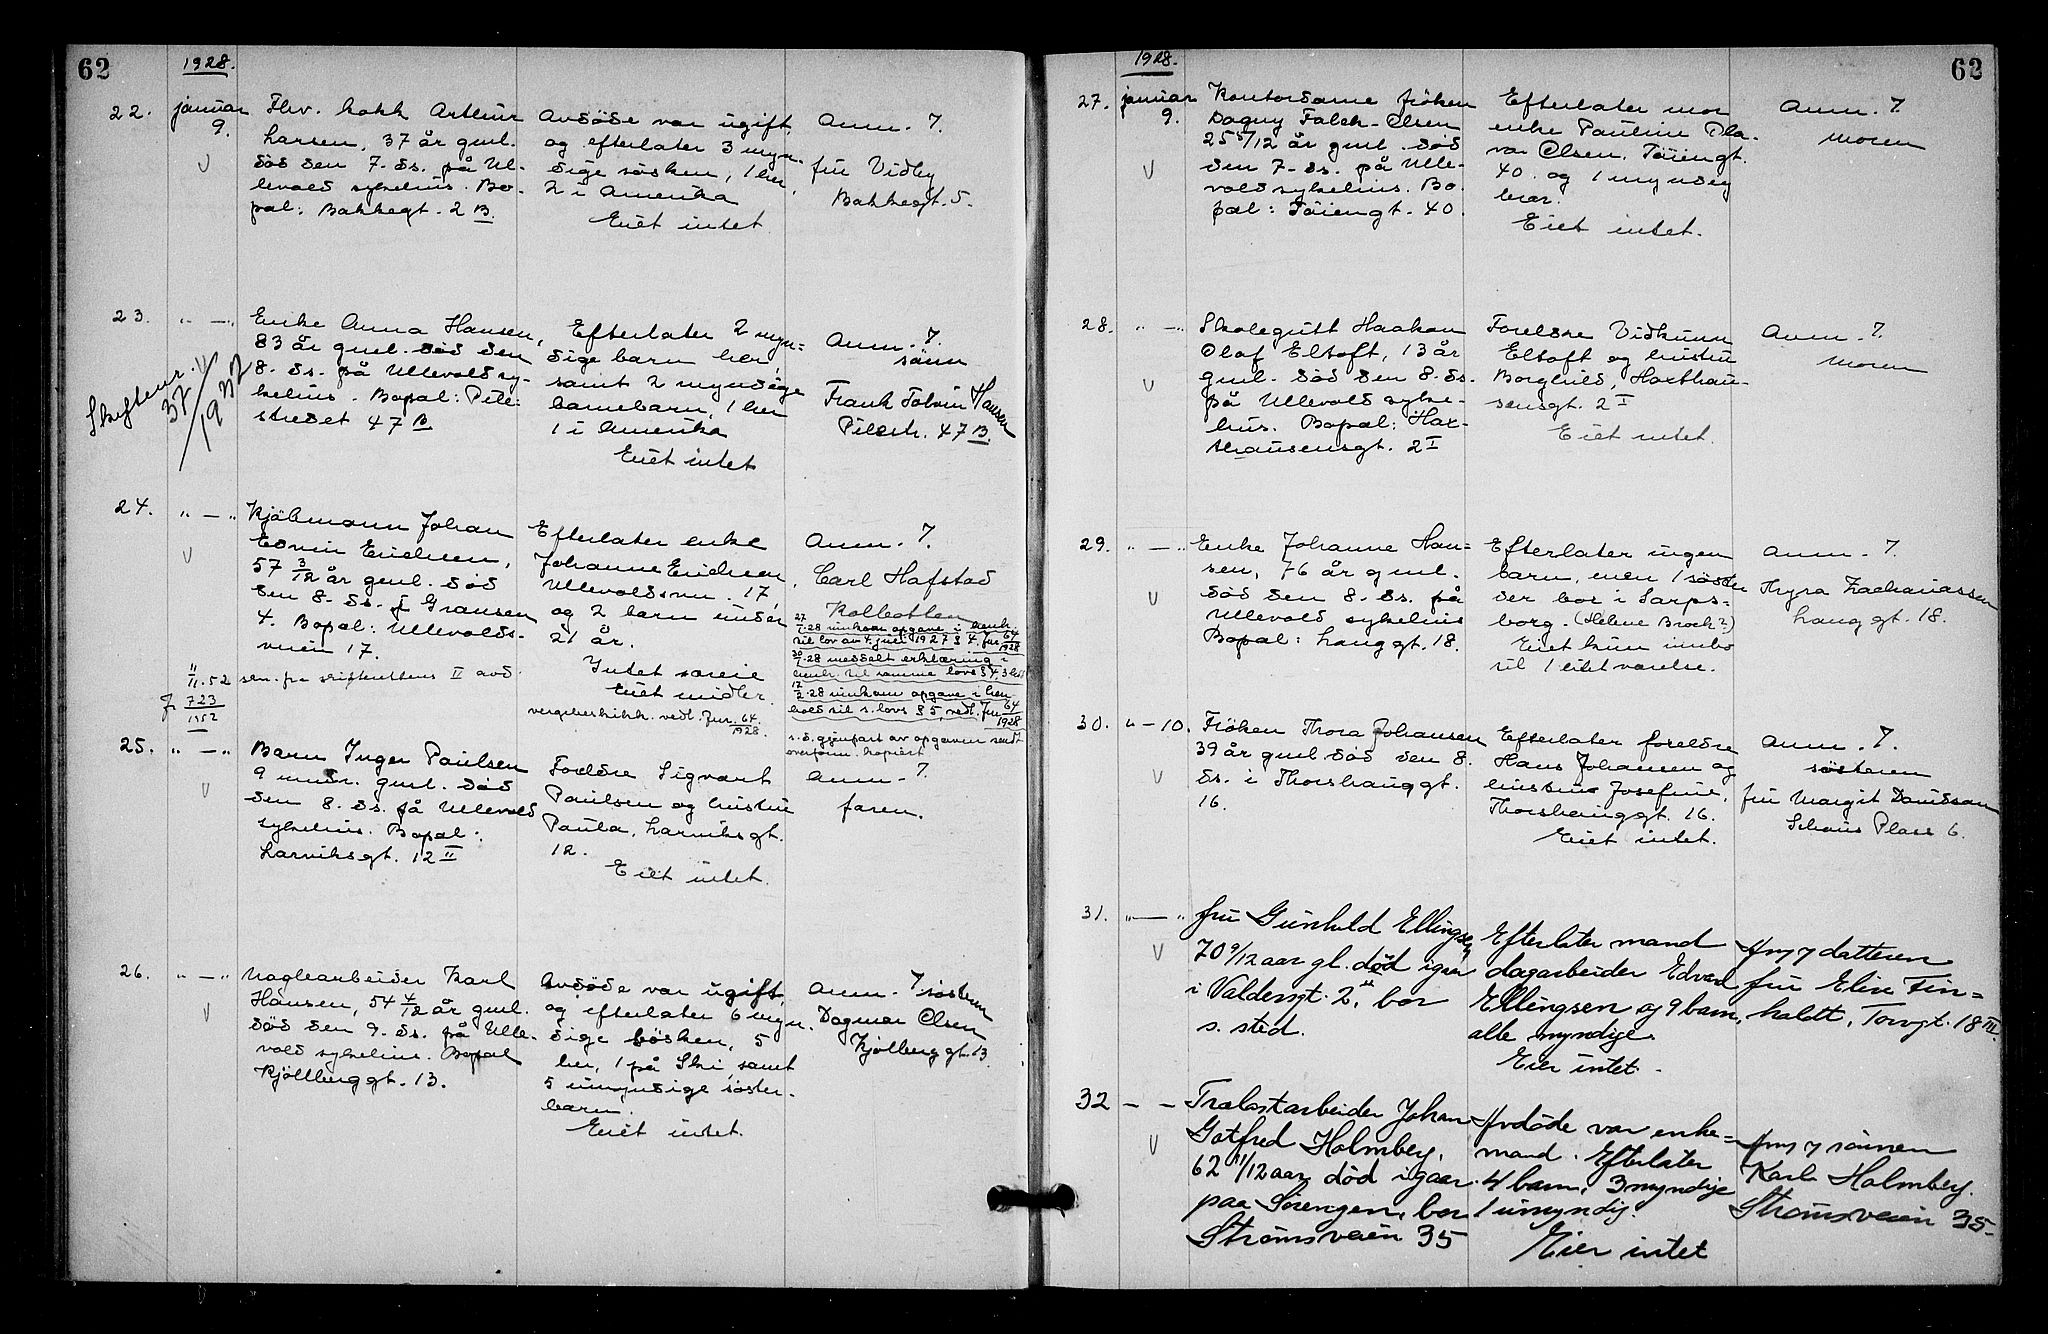 62
1928.
22.
januar
9.
Fhv. kokk Arthur
Larsen, 37 år gml.
död den 7. ds. på Ul-
levold sykehus. Bo-
pæl: Bakkegt. 2 B.
Avdöde var ugift,
og efterlater 3 myn-
dige søsken, 1 her,
2 i Amerika
Eiet intet
Anm. 7.
fru Vidby
Bakkegt. 5.
23.
" — "
Skiftenr.
37/1932
Enke Anna Hansen,
83 år gml. död den
8. ds. på Ullevold sy-
kehus. Bopæl: Pile-
stredet 47 B
Efterlater 2 myn-
dige barn her,
samt 2 myndige
barnebarn, 1 her
1 i Amerika
Eiet intet
Anm. 7.
sönn
Frank Hansen
Pilestr. 47 B.
24.
" — "
Kjöbmann Johan
Edvin Erichsen,
57 3/12 år gml. död
den 8. ds. i Gransen
4. Bopæl: Ullevolds-
veien 17.
11/11.52 sen. fra skifterettens II avd.
J. 723/1952
Efterlater enke
Johanne Erichsen,
Ullevoldsvn. 17,
og 2 barn under
21 år.
Intet særeie
Eiet midler.
vergebeskikk. vedl. Jnr. 64/1928.
Anm. 7.
Carl Hafstad
Kolbotten
27/1-28 innkom opgave i henh.
til lov av 4. juni 1927 § 4. Jnr 64/1928
30/1-28 meddelt erklæring i
henh. til samme lovs § 4, 3 ledd
17/2-28 innkom opgave i hen
hold til s. lovs § 5, vedl. Jnr 64/1928
s. d. gjenpart av opgaven sendt
overform. kopiert
25.
" — "
Barn Inger Paulsen
9 mndr. gml. död
den 8. ds. på Ullevold
sykehus. Bopæl:
Larviksgt. 12 II
Foreldre Sigvart
Paulsen og hustru
Paula, Larviksgt.
12.
Eiet intet.
Anm. 7.
faren.
26.
" — "
Naglearbeider Karl
Hansen, 54 4/12 år gml.
död den 9. ds. på Ulle-
vold sykehus. Bopæl
Kjölberggt. 13.
Avdöde var ugift,
og efterlater 6 myn-
dige søsken, 5
her, 1 på Ski, samt
5 umyndige söster-
barn.
Eiet intet.
Anm. 7 söstern
Dagmar Olsen
Kjölberggt. 13
62
1928.
27.
januar
9.
Kontordame fröken
Dagny Falch-Olsen
25 5/12 år gml. död
den 7. ds. på Ulle-
vold sykehus. Bo-
pæl: Töiengt. 40.
Efterlater mor
enke Pauline Ola-
va Olsen, Töiengt.
40. og 1 myndig
bror.
Eiet intet.
Anm. 7.
moren
28.
" — "
Skolegutt Haakon
Olaf Eltoft, 13 år
gml. död den 8. ds.
på Ullevold syke-
hus. Bopæl: Hax-
thausensgt. 2 I
Foreldre Vidkunn
Eltoft og hustru
Borghild, Haxthau-
sensgt. 2 I
Eiet intet.
Anm. 7.
moren
29.
" — "
Enke Johanne Han-
sen, 76 år gml.
död den 8. ds. på
Ullevold sykehus
Bopæl: Langgt. 18.
Efterlater ingen
barn, men 1 søster
der bor i Sarps-
borg. (Helene Brock?)
Eiet kun innbo
til 1 litet værelse.
Anm. 7.
Thyra Zachariassen
Langgt. 18.
30.
" — 10.
Fröken Thora Johansen
39 år gml död den 8.
ds. i Thorshauggt.
16.
Efterlater foreldre
Hans Johansen og
hustru Josefine,
Thorshauggt. 16.
Eiet intet.
Anm. 7.
søsteren
fru Margit Davidsen
Schous Plass 6.
31.
" — "
fru Gunhild Ellingsen
70 9/12 aar gl. död igaar
i Valdersgt. 2 II bor
s. sted.
Efterlater mand
dagarbeider Edvard
Ellingsen og 9 barn,
alle myndige.
Eier intet.
Anm 7 datteren
fru Elise Fin-
holdt, Torvgt. 18 III.
32
— —
Trælastarbeider Johan
Gotfred Holmberg.
62 11/12 aar, död igaar
paa Sörengen, bor
Strömsveien 35
Avdöde var enke-
mand. Efterlater
4 barn, 3 myndige
1 umyndig.
Eier intet
Anm 7 sönnen
Karl Holmberg.
Strömsveien 35